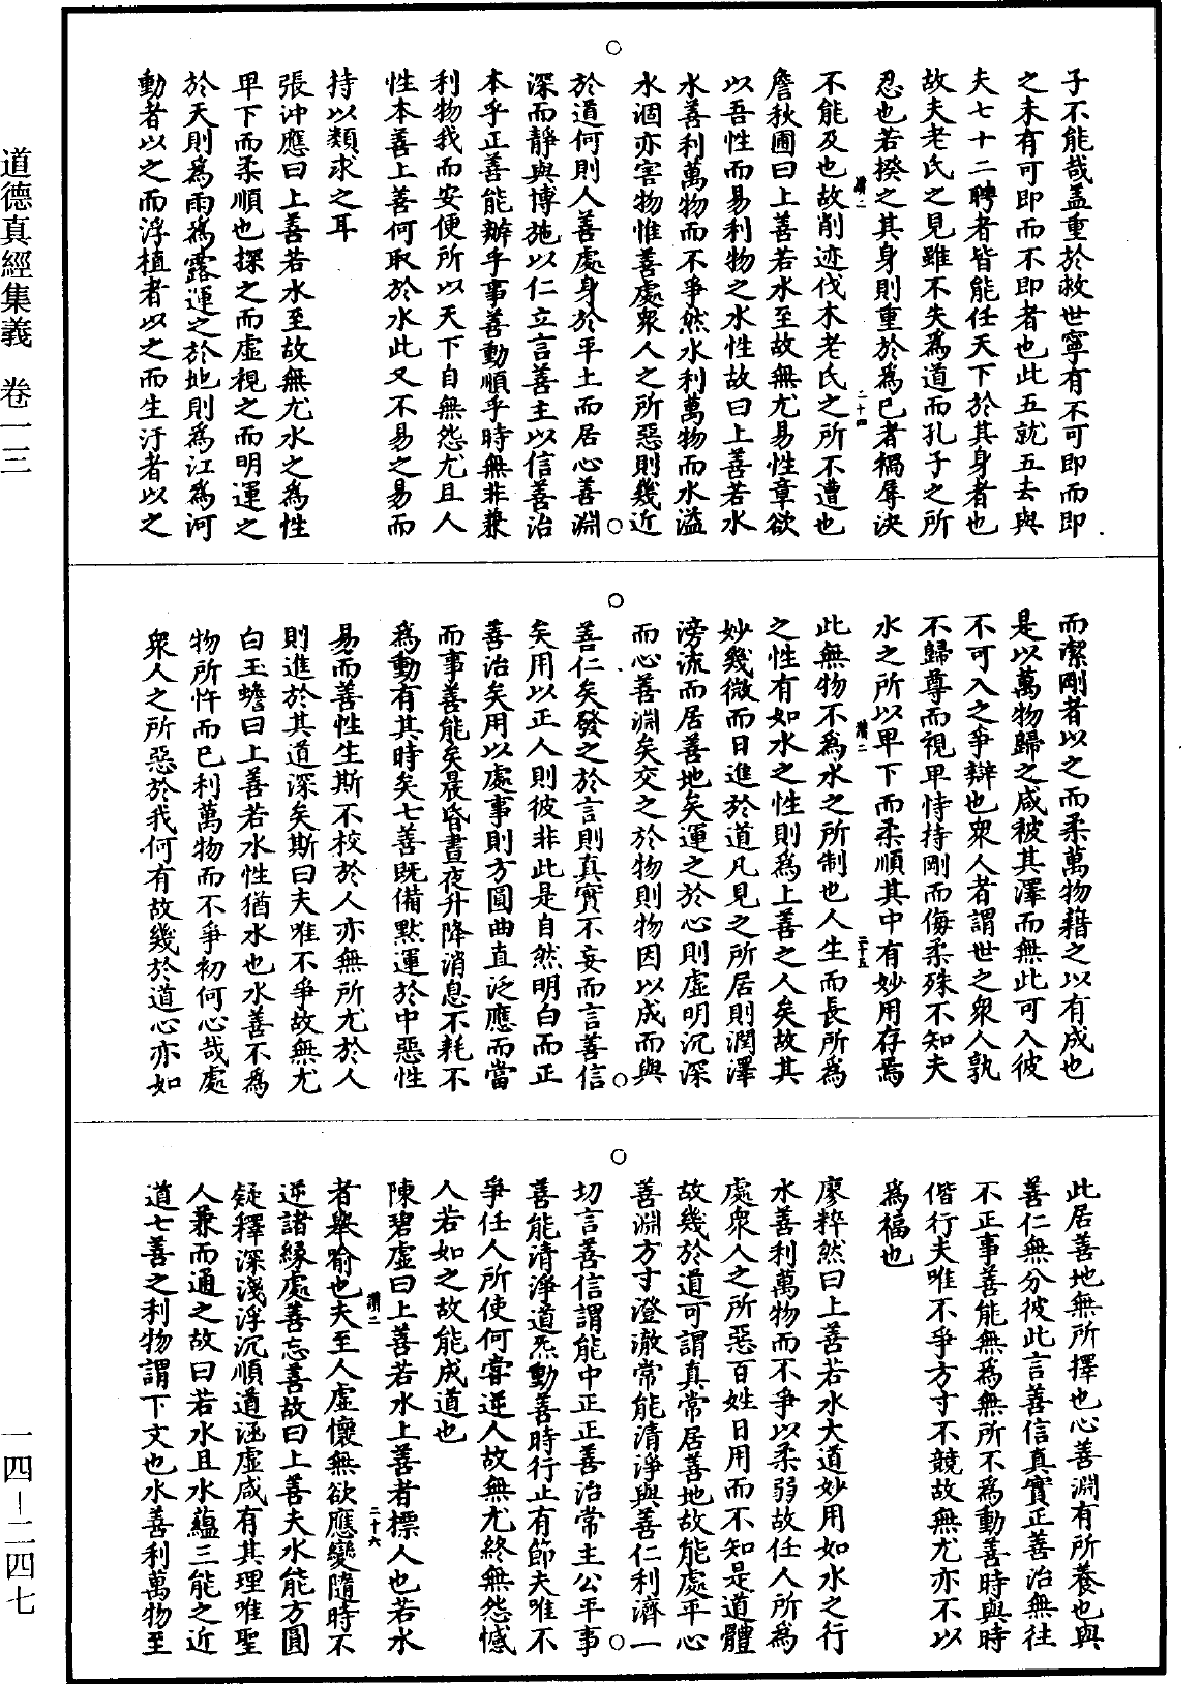 子不能哉蓋重於救世寧有不可即而即
之未有可即而不即者也此五就五去與
夫七十二聘者皆能任天下於其身者也
故夫老氏之見雖不失為道而孔子之所
忍也若揆之其身則重於為已者禍辱決
不能及也故削迹伐木老氏之所不遭也
詹秋圃曰上善若水至故無尤易性章欲
以吾性而易利物之水性故曰上善若水
水善利萬物而不爭然水利萬物而水溢
水涸亦害物惟善處衆人之所惡則幾近
於道何則人善處身於平土而居心善淵
深而靜與博施以仁立言善主以信善治
本乎正善能辦乎事善動順乎時無非兼
利物我而安便所以天下自無怨尤且人
性本善上善何取於水此又不易之易而
持以類求之耳
張沖應曰上善若水至故無尤水之為性
卑下而柔順也探之而虛視之而明運之
於天則為雨為露運之於地則為江為河
動者以之而浮植者以之而生汙者以之
而潔剛者以之而柔萬物藉之以有成也
是以萬物歸之咸被其澤而無此可入彼
不可入之爭辯也衆人者謂世之衆人孰
不歸尊而視卑恃持剛而侮柔殊不知夫
水之所以卑下而柔順其中有妙用存焉
此無物不為水之所制也人生而長所為
之性有如水之性則為上善之人矣故其
妙幾微而日進於道凡見之所居則潤澤
滂流而居善地矣運之於心則虛明沉深
而心善淵矣交之於物則物因以成而與
善仁矣發之於言則真實不妄而言善信
矣用以正人則彼非此是自然明白而正
善治矣用以處事則方圓曲直泛應而當
而事善能矣晨昏晝夜升降消息不耗不
為動有其時矣七善既備默運於中惡性
易而善性生斯不校於人亦無所尤於人
則進於其道深矣斯曰夫唯不爭故無尤
白玉蟾曰上善若水性猶水也水善不為
物所忤而已利萬物而不爭初何心哉處
衆人之所惡於我何有故幾於道心亦如
此居善地無所擇也心善淵有所養也與
善仁無分彼此言善信真實正善治無往
不正事善能無為無所不為動善時與時
偕行夫唯不爭方寸不競故無尤亦不以
為福也
廖粹然曰上善若水大道妙用如水之行
水善利萬物而不爭以柔弱故任人所為
處衆人之所惡百姓日用而不知是道體
故幾於道可謂真常居善地故能處平心
善淵方寸澄澈常能清淨與善仁利濟一
切言善信謂能中正正善治常主公平事
善能清淨道炁動善時行止有節夫唯不
爭任人所使何嘗逆人故無尤終無怨憾
人若如之故能成道也
陳碧虛曰上善若水上善者標人也若水
者舉喻也夫至人虛懷無欲應變隨時不
逆諸緣處善忘善故曰上善夫水能方圓
疑釋深淺浮沉順道涵虛咸有其理唯聖
人兼而通之故曰若水且水蘊三能之近
道七善之利物謂下文也水善利萬物至
讚一
二十四
讚二
二十五
讚二
二十六
道德真經集義 卷一三
一四—二四七